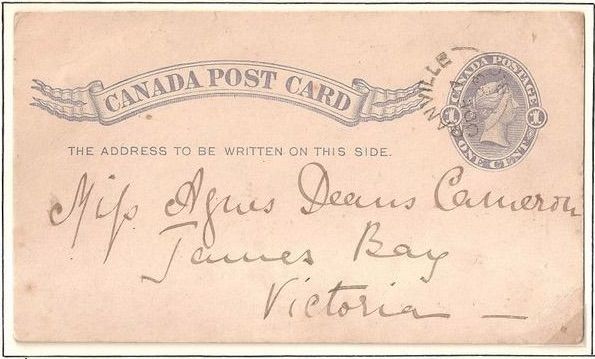 CANADA POST CARD
CANADA POSTAGE
1 1
ONE CENT
THE ADDRESS TO BE WRITTEN ON THIS SIDE.
Miss Agnes Deans Cameron
James Bay
Victoria